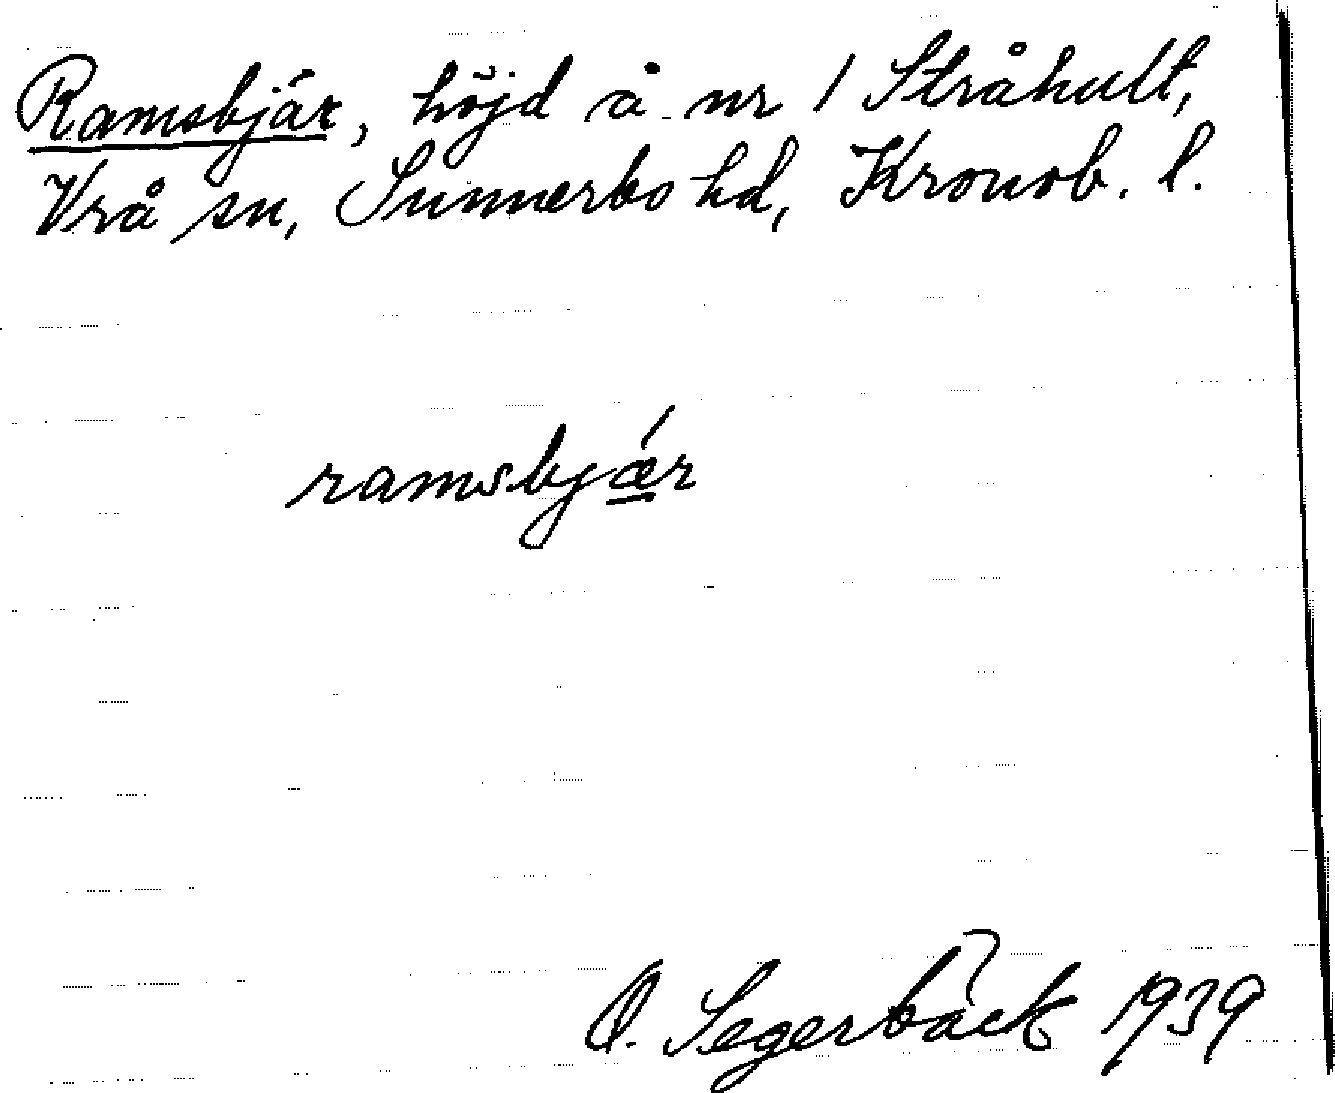 Ramsbjär, höjd å nr 1 Stråhult,
Vrå sn, Sunnerbo hd, Kronob. l.
ramsbjǽr
O. Segerbäck 1939